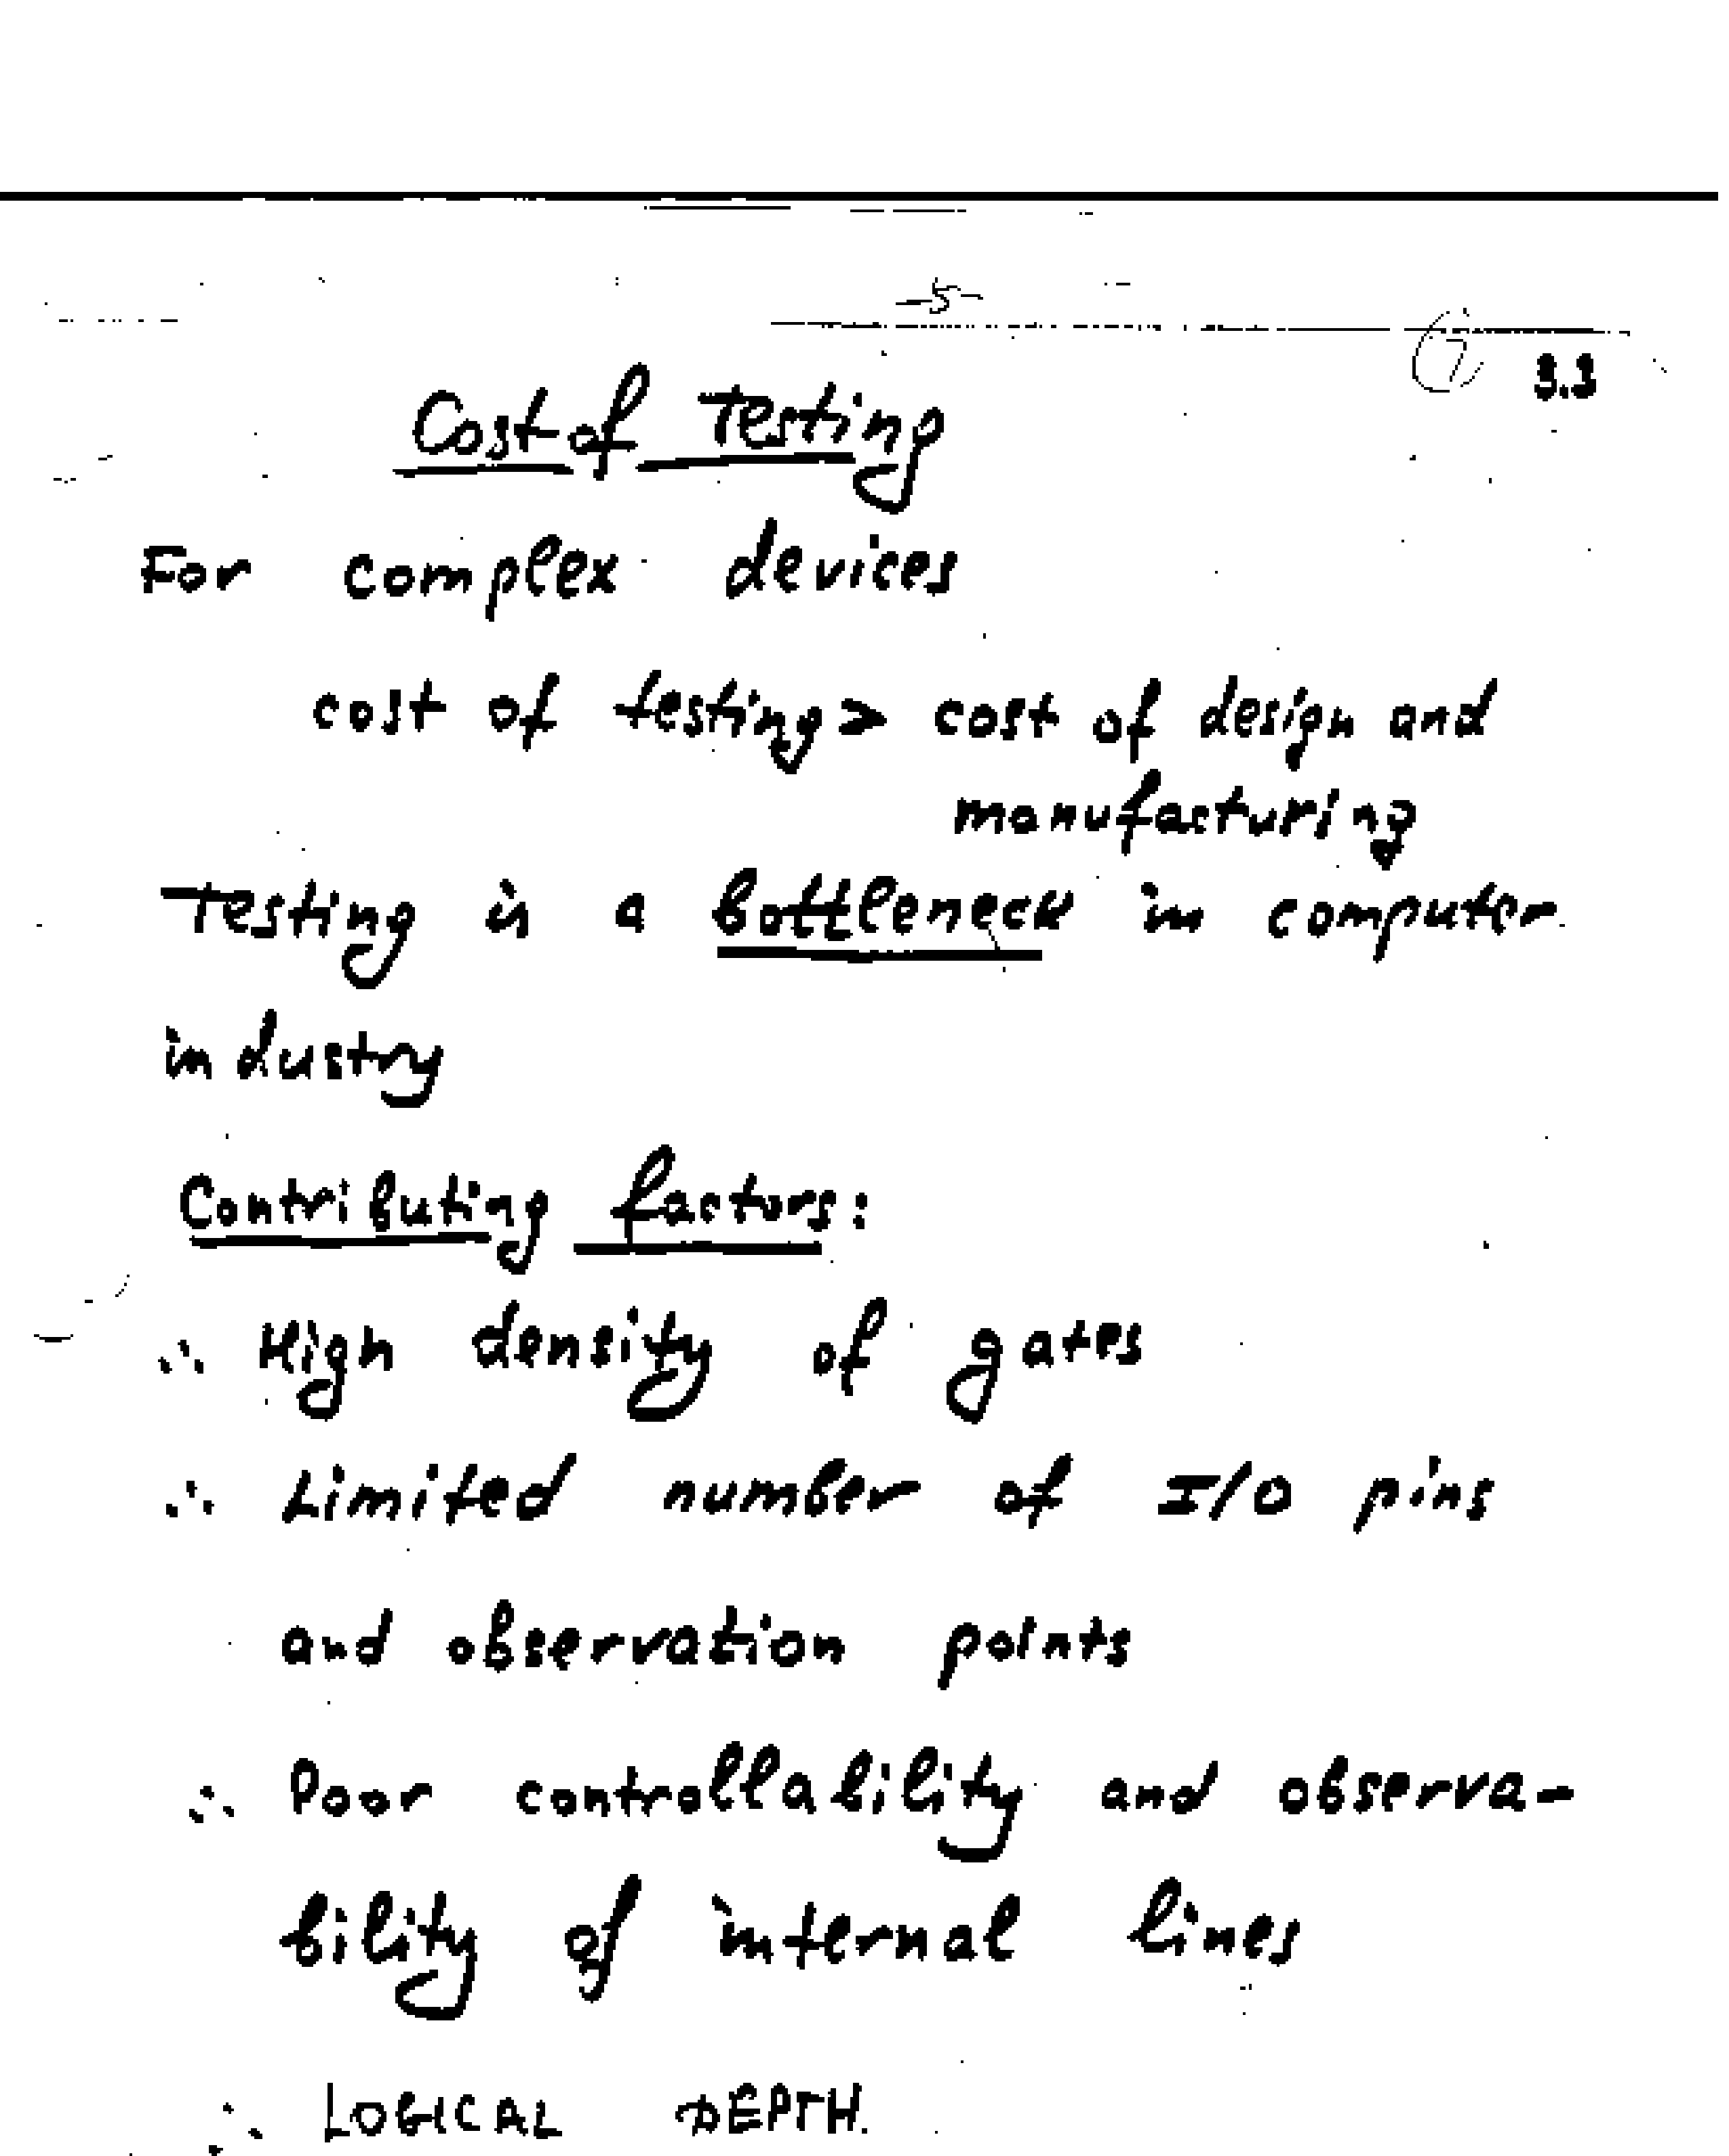 -5-
7 3.3
Cost of Testing
For complex devices
cost of testing > cost of design and
manufacturing
Testing is a bottleneck in computer
industry
Contributing factors:
∴ High density of gates
∴ Limited number of I/O pins
and observation points
∴ Poor controllability and observa-
bility of internal lines
∴ LOGICAL DEPTH.